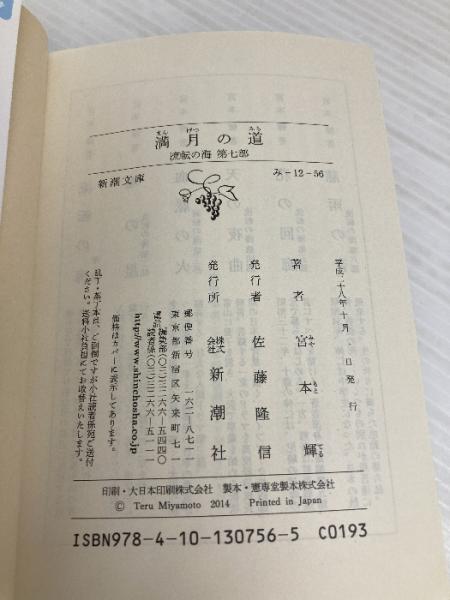 満月の道
流転の海 第七部
新潮文庫
み-12-56
平成二十八年十月一日発行
著者 宮本輝
発行者 佐藤隆信
発行所 株式会社 新潮社
郵便番号 一六二-八七一一
東京都新宿区矢来町七一
電話 編集部(〇三)三二六六-五四四〇
読者係(〇三)三二六六-五一一一
http://www.shinchosha.co.jp
価格はカバーに表示してあります。
乱丁・落丁本は、ご面倒ですが小社読者係宛ご送付
ください。送料小社負担にてお取替えいたします。
印刷・大日本印刷株式会社 製本・憲専堂製本株式会社
© Teru Miyamoto 2014 Printed in Japan
ISBN978-4-10-130756-5 C0193